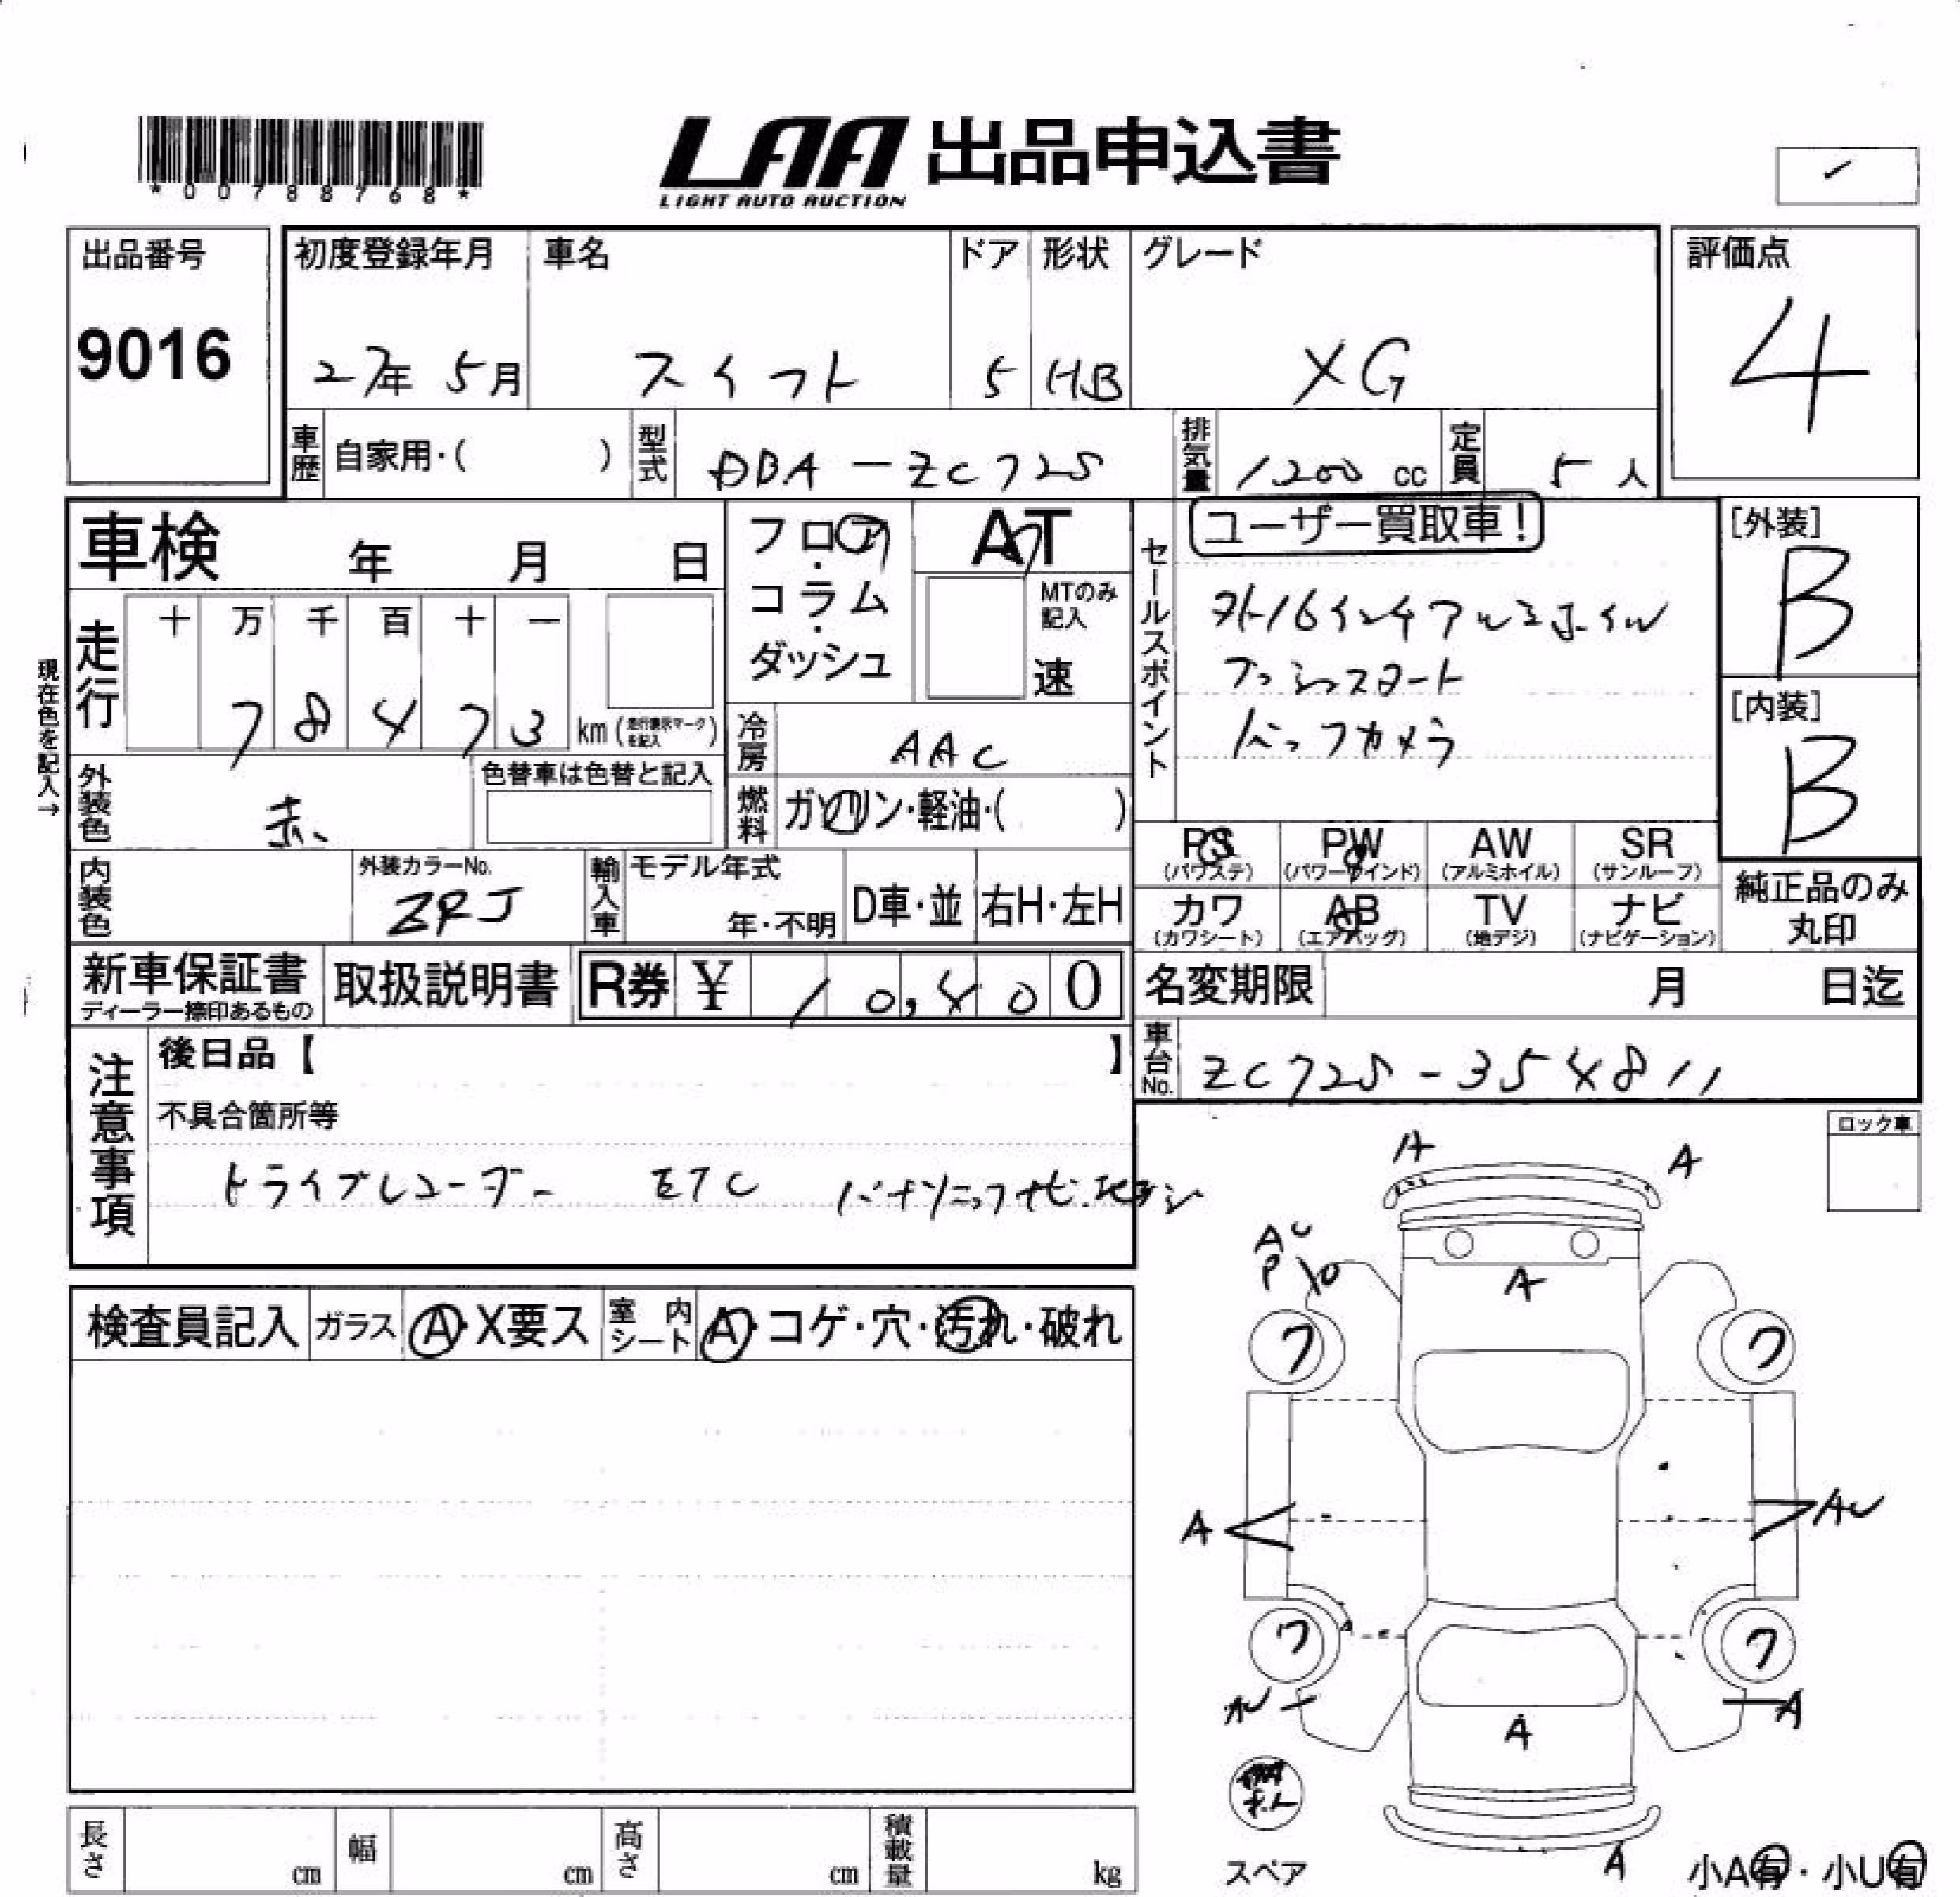 *00788768*
LAA 出品申込書
LIGHT AUTO AUCTION
出品番号
9016
初度登録年月
27年 5月
車名
スイフト
ドア
5
形状
HB
グレード
XG
評価点
4
車歴 自家用・( )
型式 DBA-ZC72S
排気量 1200 cc
定員 5人
車検 年 月 日
フロア・コラム・ダッシュ
AT
MTのみ記入
速
セールスポイント
ユーザー買取車!
外16インチアルミホイル
プッシュスタート
バックカメラ
[外装]
B
[内装]
B
現在色を記入→
走行
十 万 千 百 十 一
7 8 4 7 3 km (走行表示マークを記入)
冷房 AAC
外装色 赤
色替車は色替と記入
燃料 ガソリン・軽油・( )
PS (パワステ)
PW (パワーウインド)
AW (アルミホイル)
SR (サンルーフ)
カワ (カワシート)
AB (エアバッグ)
TV (地デジ)
ナビ (ナビゲーション)
純正品のみ丸印
内装色
外装カラーNo.
輸入車
モデル年式
年・不明
D車・並
右H・左H
新車保証書
ディーラー捺印あるもの
取扱説明書
R券 ¥ 10,400
名変期限 月 日迄
車台No. ZC72S-354811
注意事項
後日品【 】
不具合箇所等
ドライブレコーダー ETC パナソニックナビ.地デジ
ロック車
検査員記入
ガラス A・X要ス
室内シート A・コゲ・穴・汚れ・破れ
A
A
AU
P
A
ワ
ワ
A
AU
ワ
ワ
AU
A
A
スペア
A
小A有・小U有
長さ cm
幅 cm
高さ cm
積載量 kg